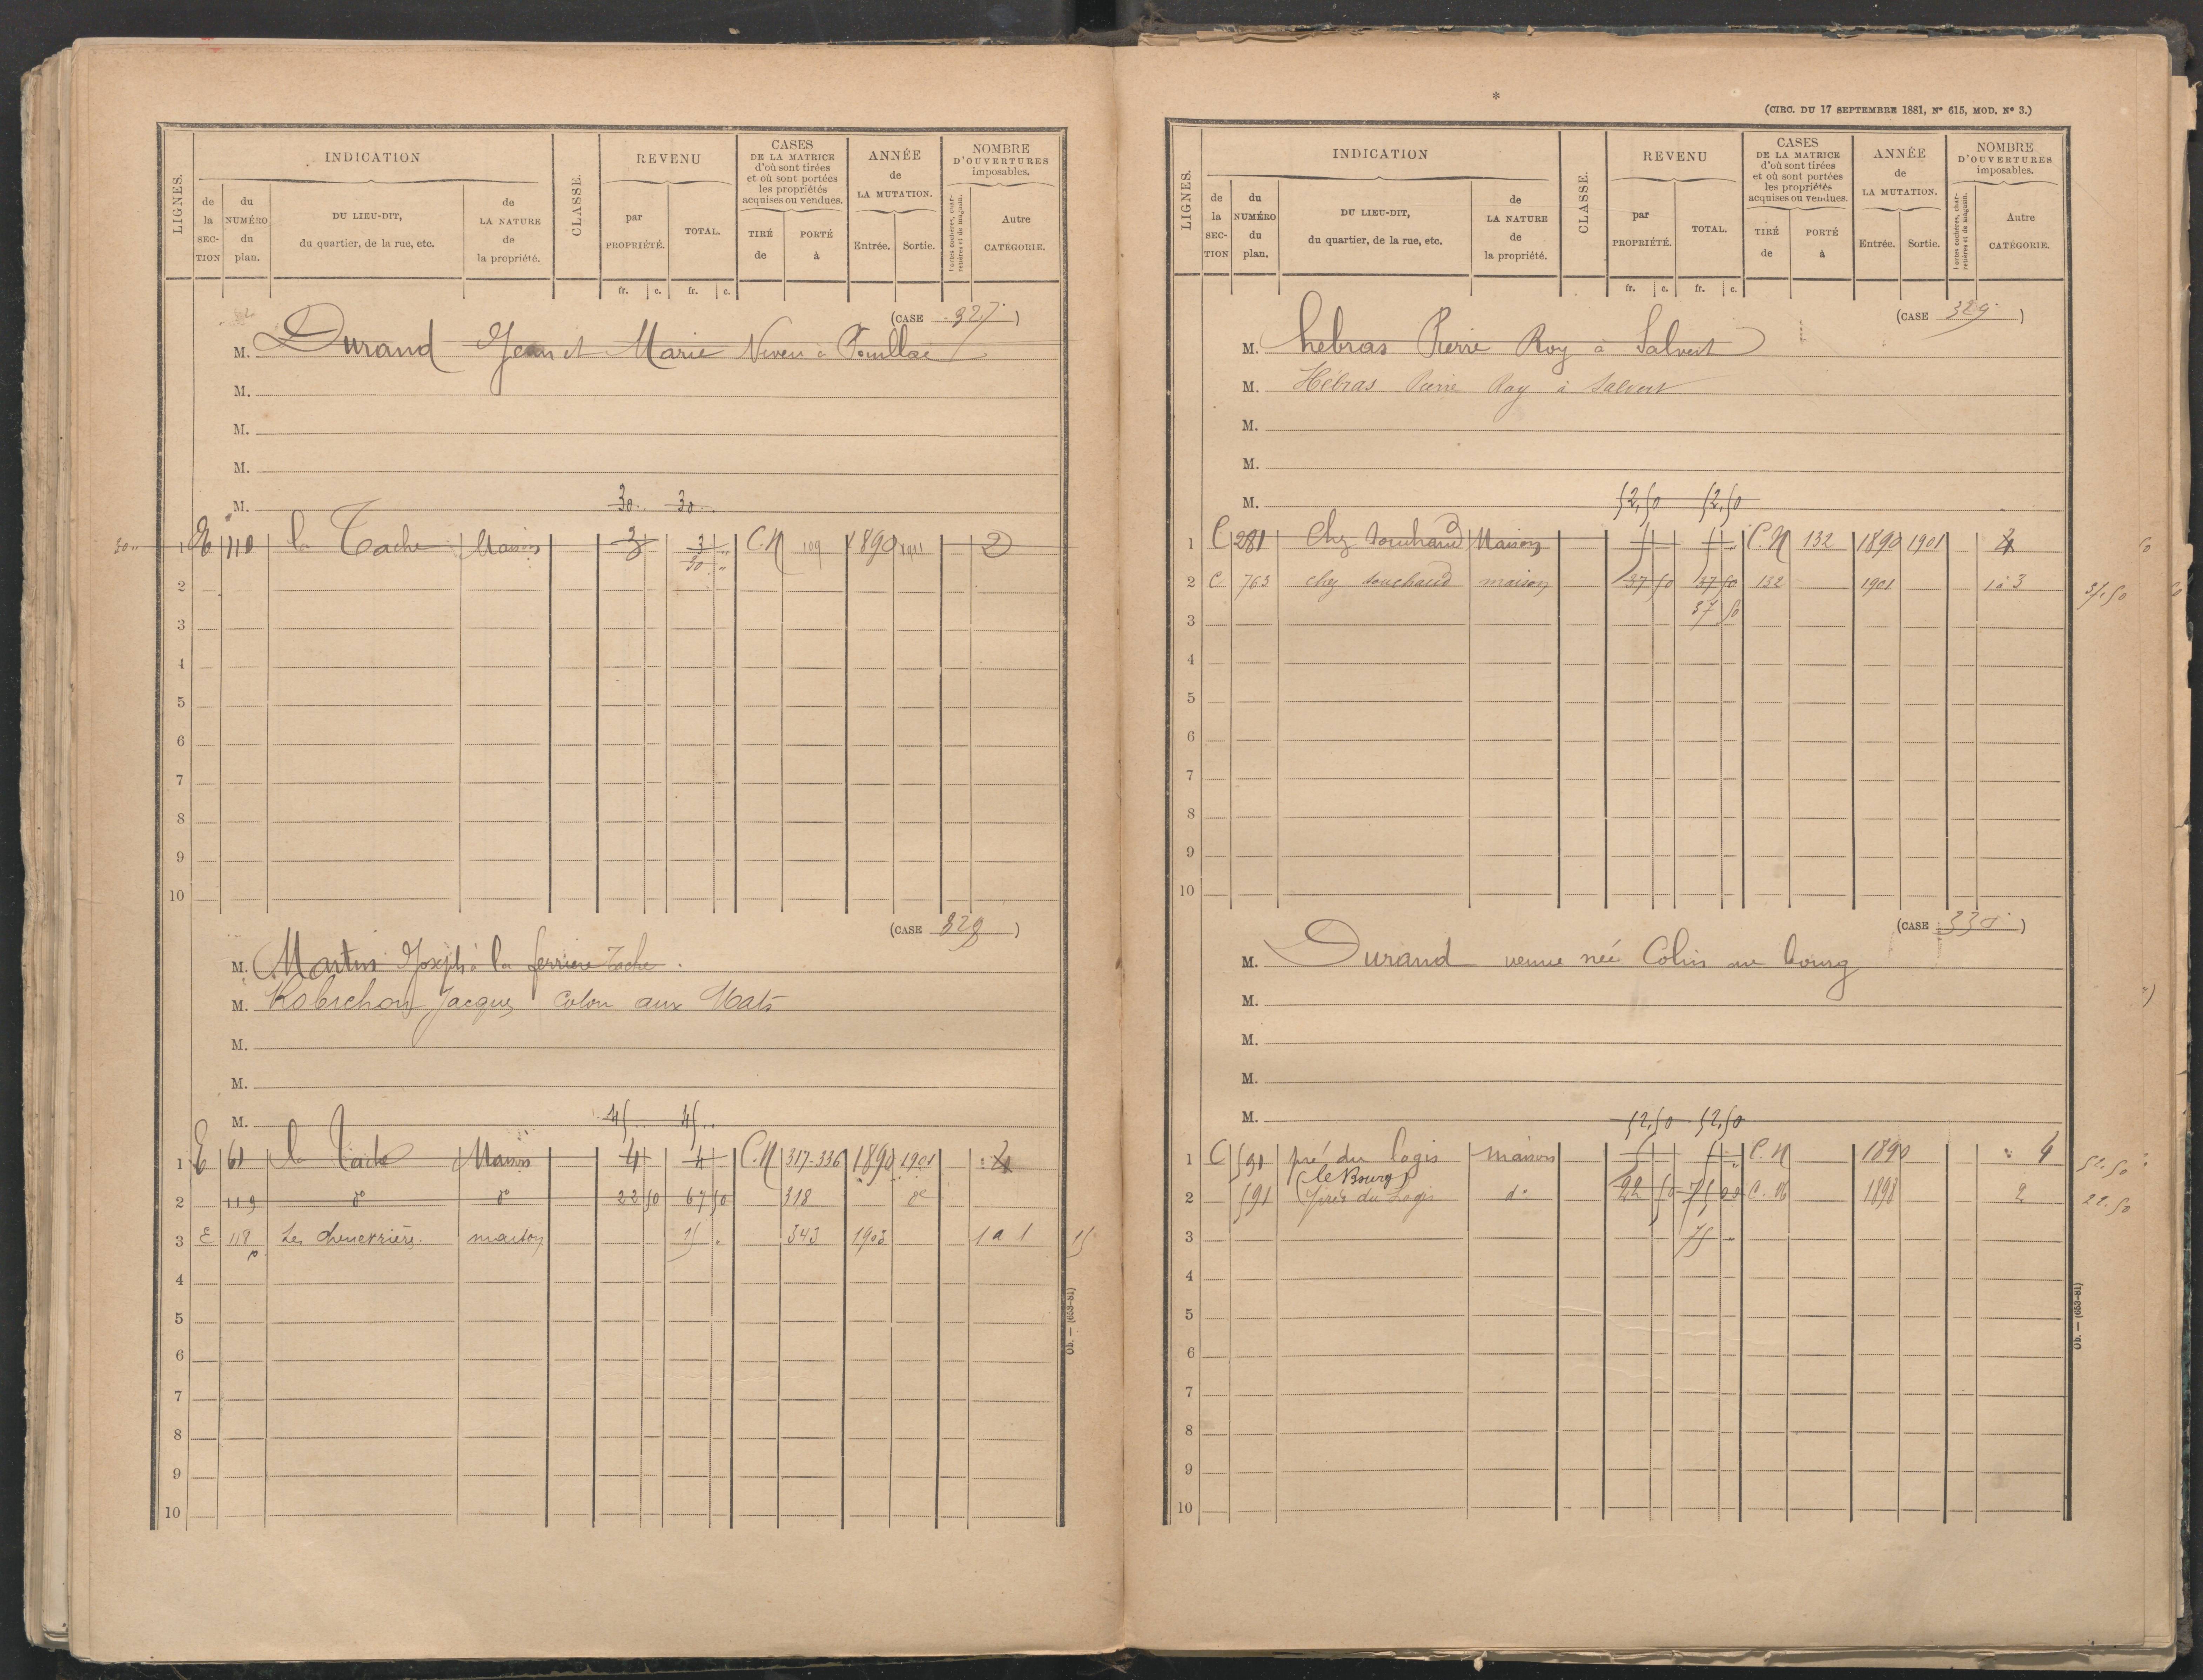 LIGNES.
INDICATION
de la SECTION
du NUMÉRO du plan.
DU LIEU-DIT, du quartier, de la rue, etc.
de LA NATURE de la propriété.
CLASSE.
REVENU
par PROPRIÉTÉ.
TOTAL.
CASES DE LA MATRICE d'où sont tirées et où sont portées les propriétés acquises ou vendues.
TIRÉ de
PORTÉ à
ANNÉE de LA MUTATION.
Entrée.
Sortie.
NOMBRE D'OUVERTURES imposables.
Portes cochères, charretières et de magasin.
Autre CATÉGORIE.
fr. c. fr. c.
(CASE 327)
M. Durand Jean et Marie Neveu à
M.
M.
M.
M. 30.. 30..
30 1 E 110 la Tache Maison 3 3 C.N 109 1890 1911 2
30
2
3
4
5
6
7
8
9
10
(CASE 328)
M. Martin Joseph à la ferriere Tache
M. Robichon Jacques Colon aux Mats
M.
M.
M. 45.. 45..
1 E 61 la Tache Maison 4 4 C.N 317-336 1890 1901 4
2 119 do do 22 50 67 50 318 do
3 E 118 p Les cheverrière maison 15 343 1903 1 à 1 15
4
5
6
7
8
9
10
Ob. — (653-81)
*
(CIRC. DU 17 SEPTEMBRE 1881, N° 615, MOD. N° 3.)
LIGNES.
INDICATION
de la SECTION
du NUMÉRO du plan.
DU LIEU-DIT, du quartier, de la rue, etc.
de LA NATURE de la propriété.
CLASSE.
REVENU
par PROPRIÉTÉ.
TOTAL.
CASES DE LA MATRICE d'où sont tirées et où sont portées les propriétés acquises ou vendues.
TIRÉ de
PORTÉ à
ANNÉE de LA MUTATION.
Entrée.
Sortie.
NOMBRE D'OUVERTURES imposables.
Portes cochères, charretières et de magasin.
Autre CATÉGORIE.
fr. c. fr. c.
(CASE 329)
M. hebras Pierre Roy à Salvert
M. Hébras Pierre Roy à Salvert
M.
M.
M. 52,50 52,50
1 C 281 Chez Souchaud Maison 5 5 C.N 132 1890 1901 4
2 C 763 chez Souchaud maison 37 50 37 50 132 1901 1 à 3 37.50
37 50
3
4
5
6
7
8
9
10
(CASE 330)
M. Durand veuve née Colin au bourg
M.
M.
M.
M. 52,50 52,50
1 C 591 pré du Logis maison 5 5 C.N 1890 4 52.50
(le Bourg)
2 591 près du Logis do 22 50 75 00 C. N 1898 2 22.50
3 75
4
5
6
7
8
9
10
Ob. — (653-81)